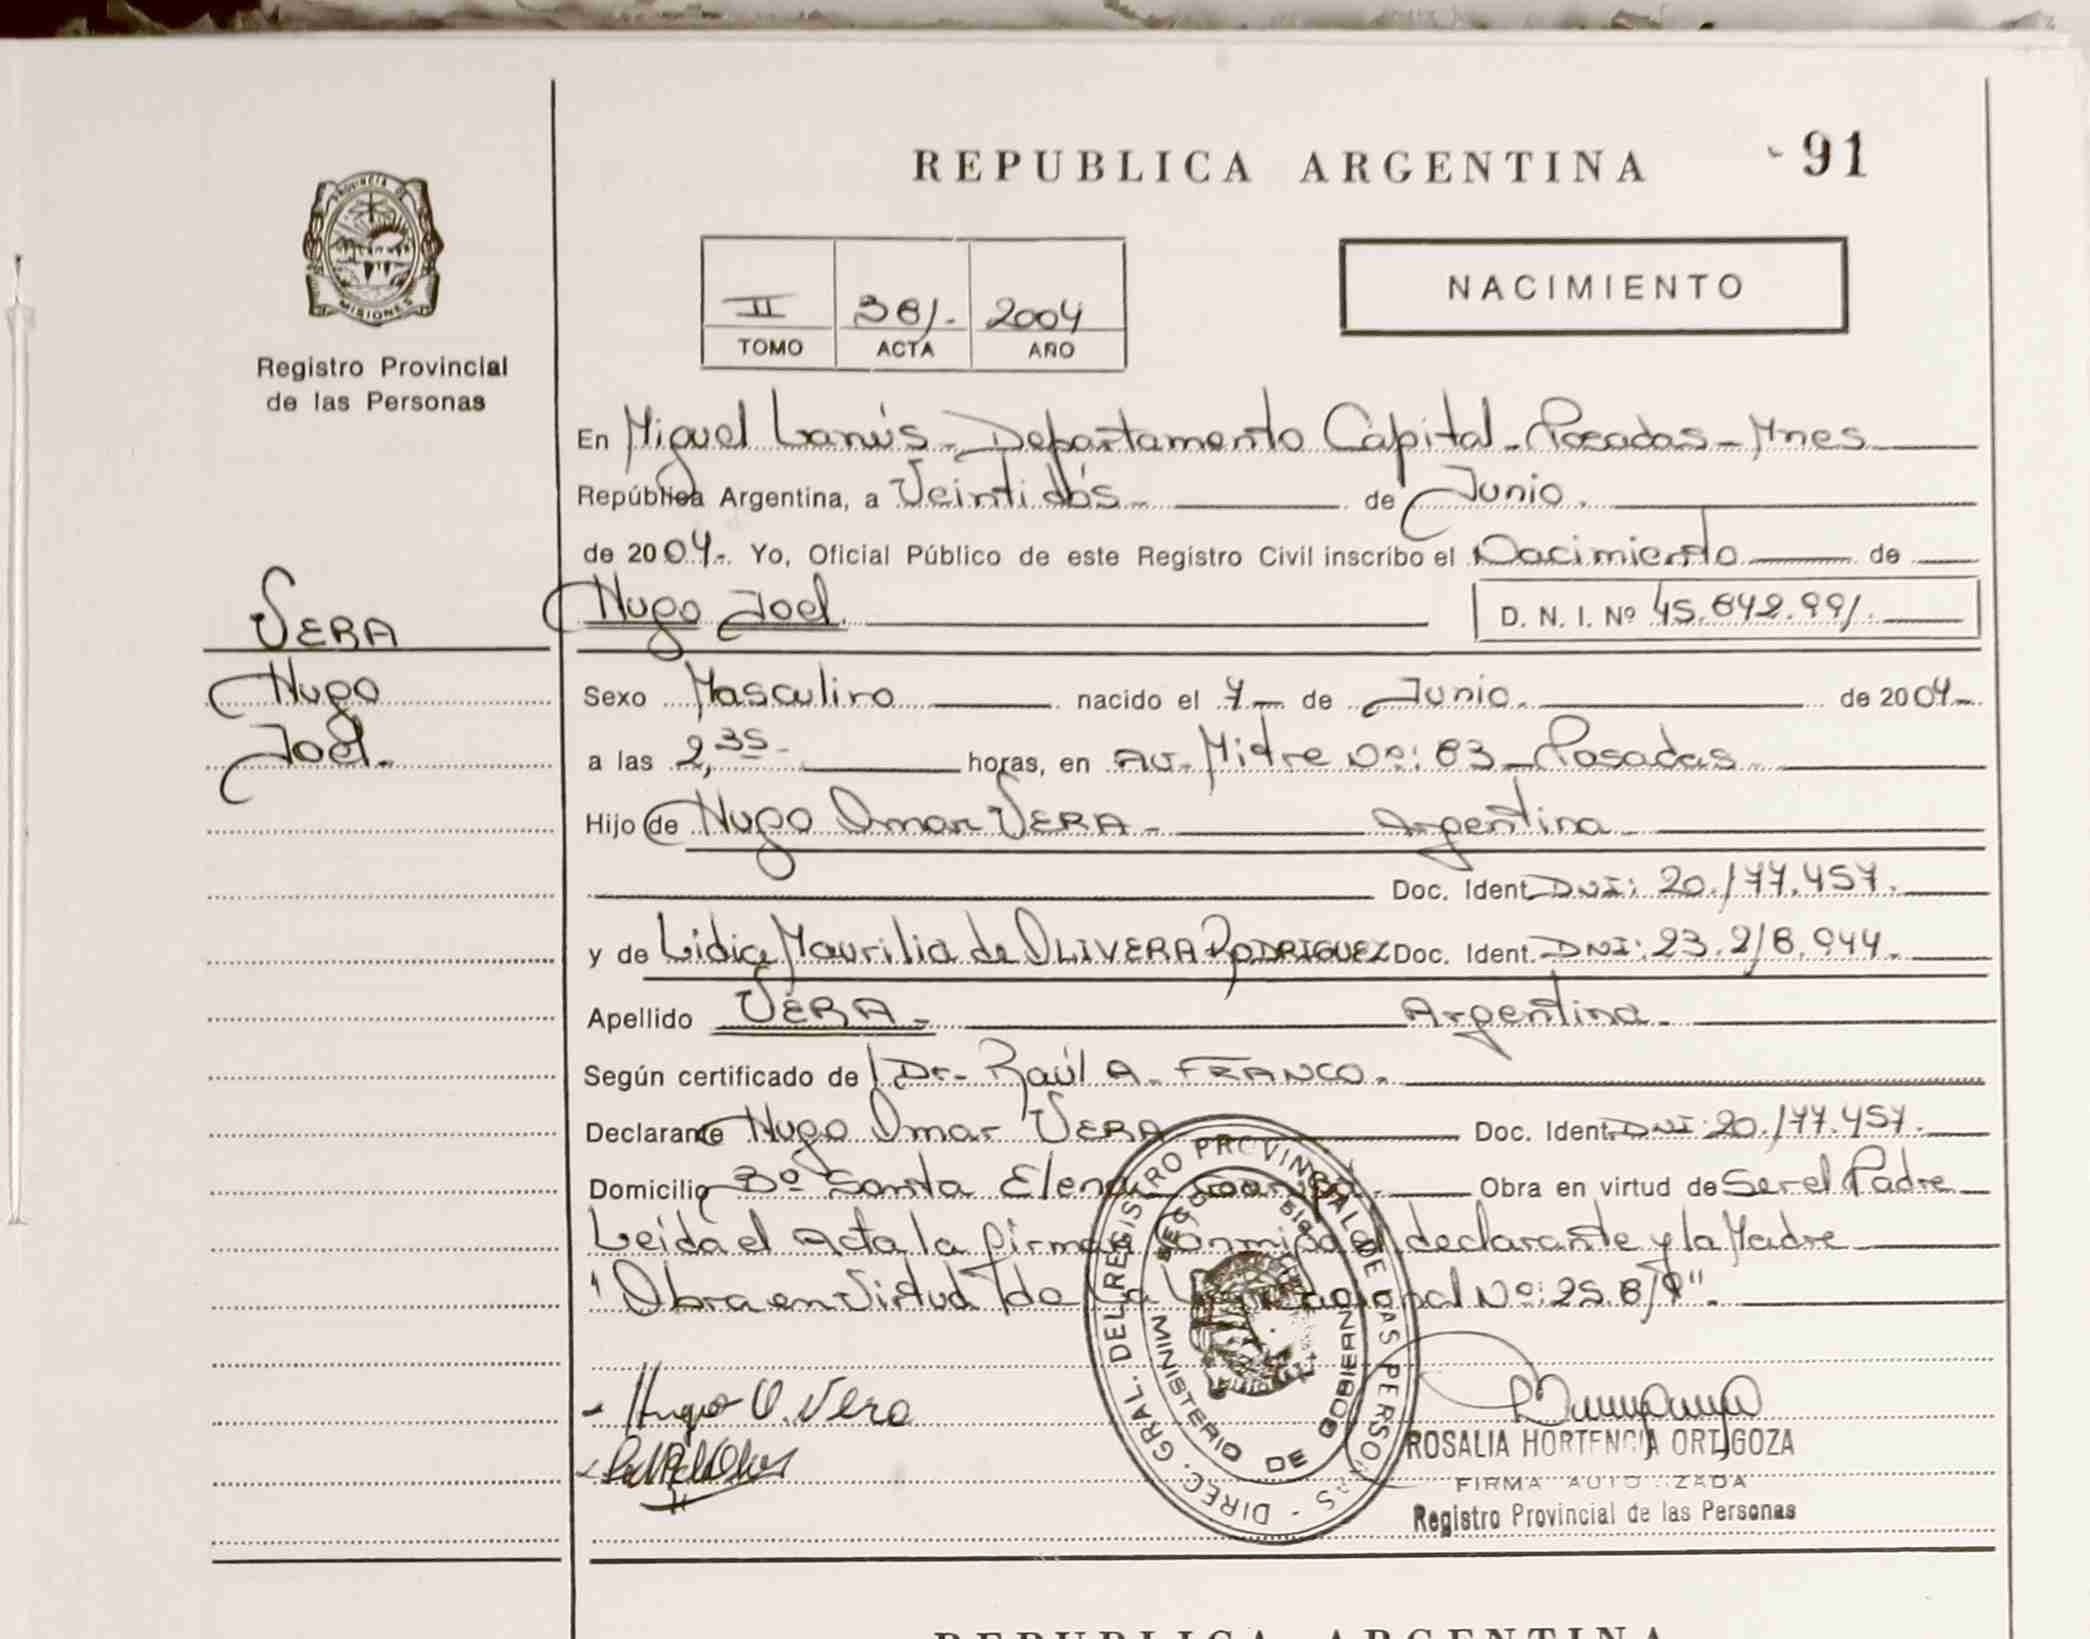 REPUBLICA ARGENTINA 91
PROVINCIA DE MISIONES
Registro Provincial
de las Personas
II 381.- 2004
TOMO ACTA AÑO
NACIMIENTO
En Miguel Lanús - Departamento Capital - Posadas - Mnes
República Argentina, a Veintidós - de Junio.
de 2004.- Yo, Oficial Público de este Registro Civil inscribo el Nacimiento de
VERA
Hugo
Joel.-
Hugo Joel. D. N. I. Nº 45.842.991.
Sexo Masculino nacido el 7 - de Junio. de 2004.-
a las 2,35- horas, en Av. Mitre Nº: 83 - Posadas
Hijo de Hugo Omar VERA - Argentina
Doc. Ident. DNI: 20.177.457.
y de Lidia Maurilia de OLIVERA RODRIGUEZ Doc. Ident. DNI: 23.218.944.
Apellido VERA - Argentina
Según certificado de Dr. Raúl A. FRANCO.
Declarante Hugo Omar VERA Doc. Ident. DNI: 20.177.457.
Domicilio Bº Santa Elena Obra en virtud de Ser el Padre
Leida el Acta la firman Conmigo el declarante y la Madre
"Obra en Virtud de La Ley Nacional Nº: 25.819".
Hugo O. Vera
DIREC. GRAL. DEL REGISTRO PROVINCIAL DE LAS PERSONAS
MINISTERIO DE GOBIERNO
ROSALIA HORTENCIA ORTIGOZA
FIRMA AUTORIZADA
Registro Provincial de las Personas
REPUBLICA ARGENTINA